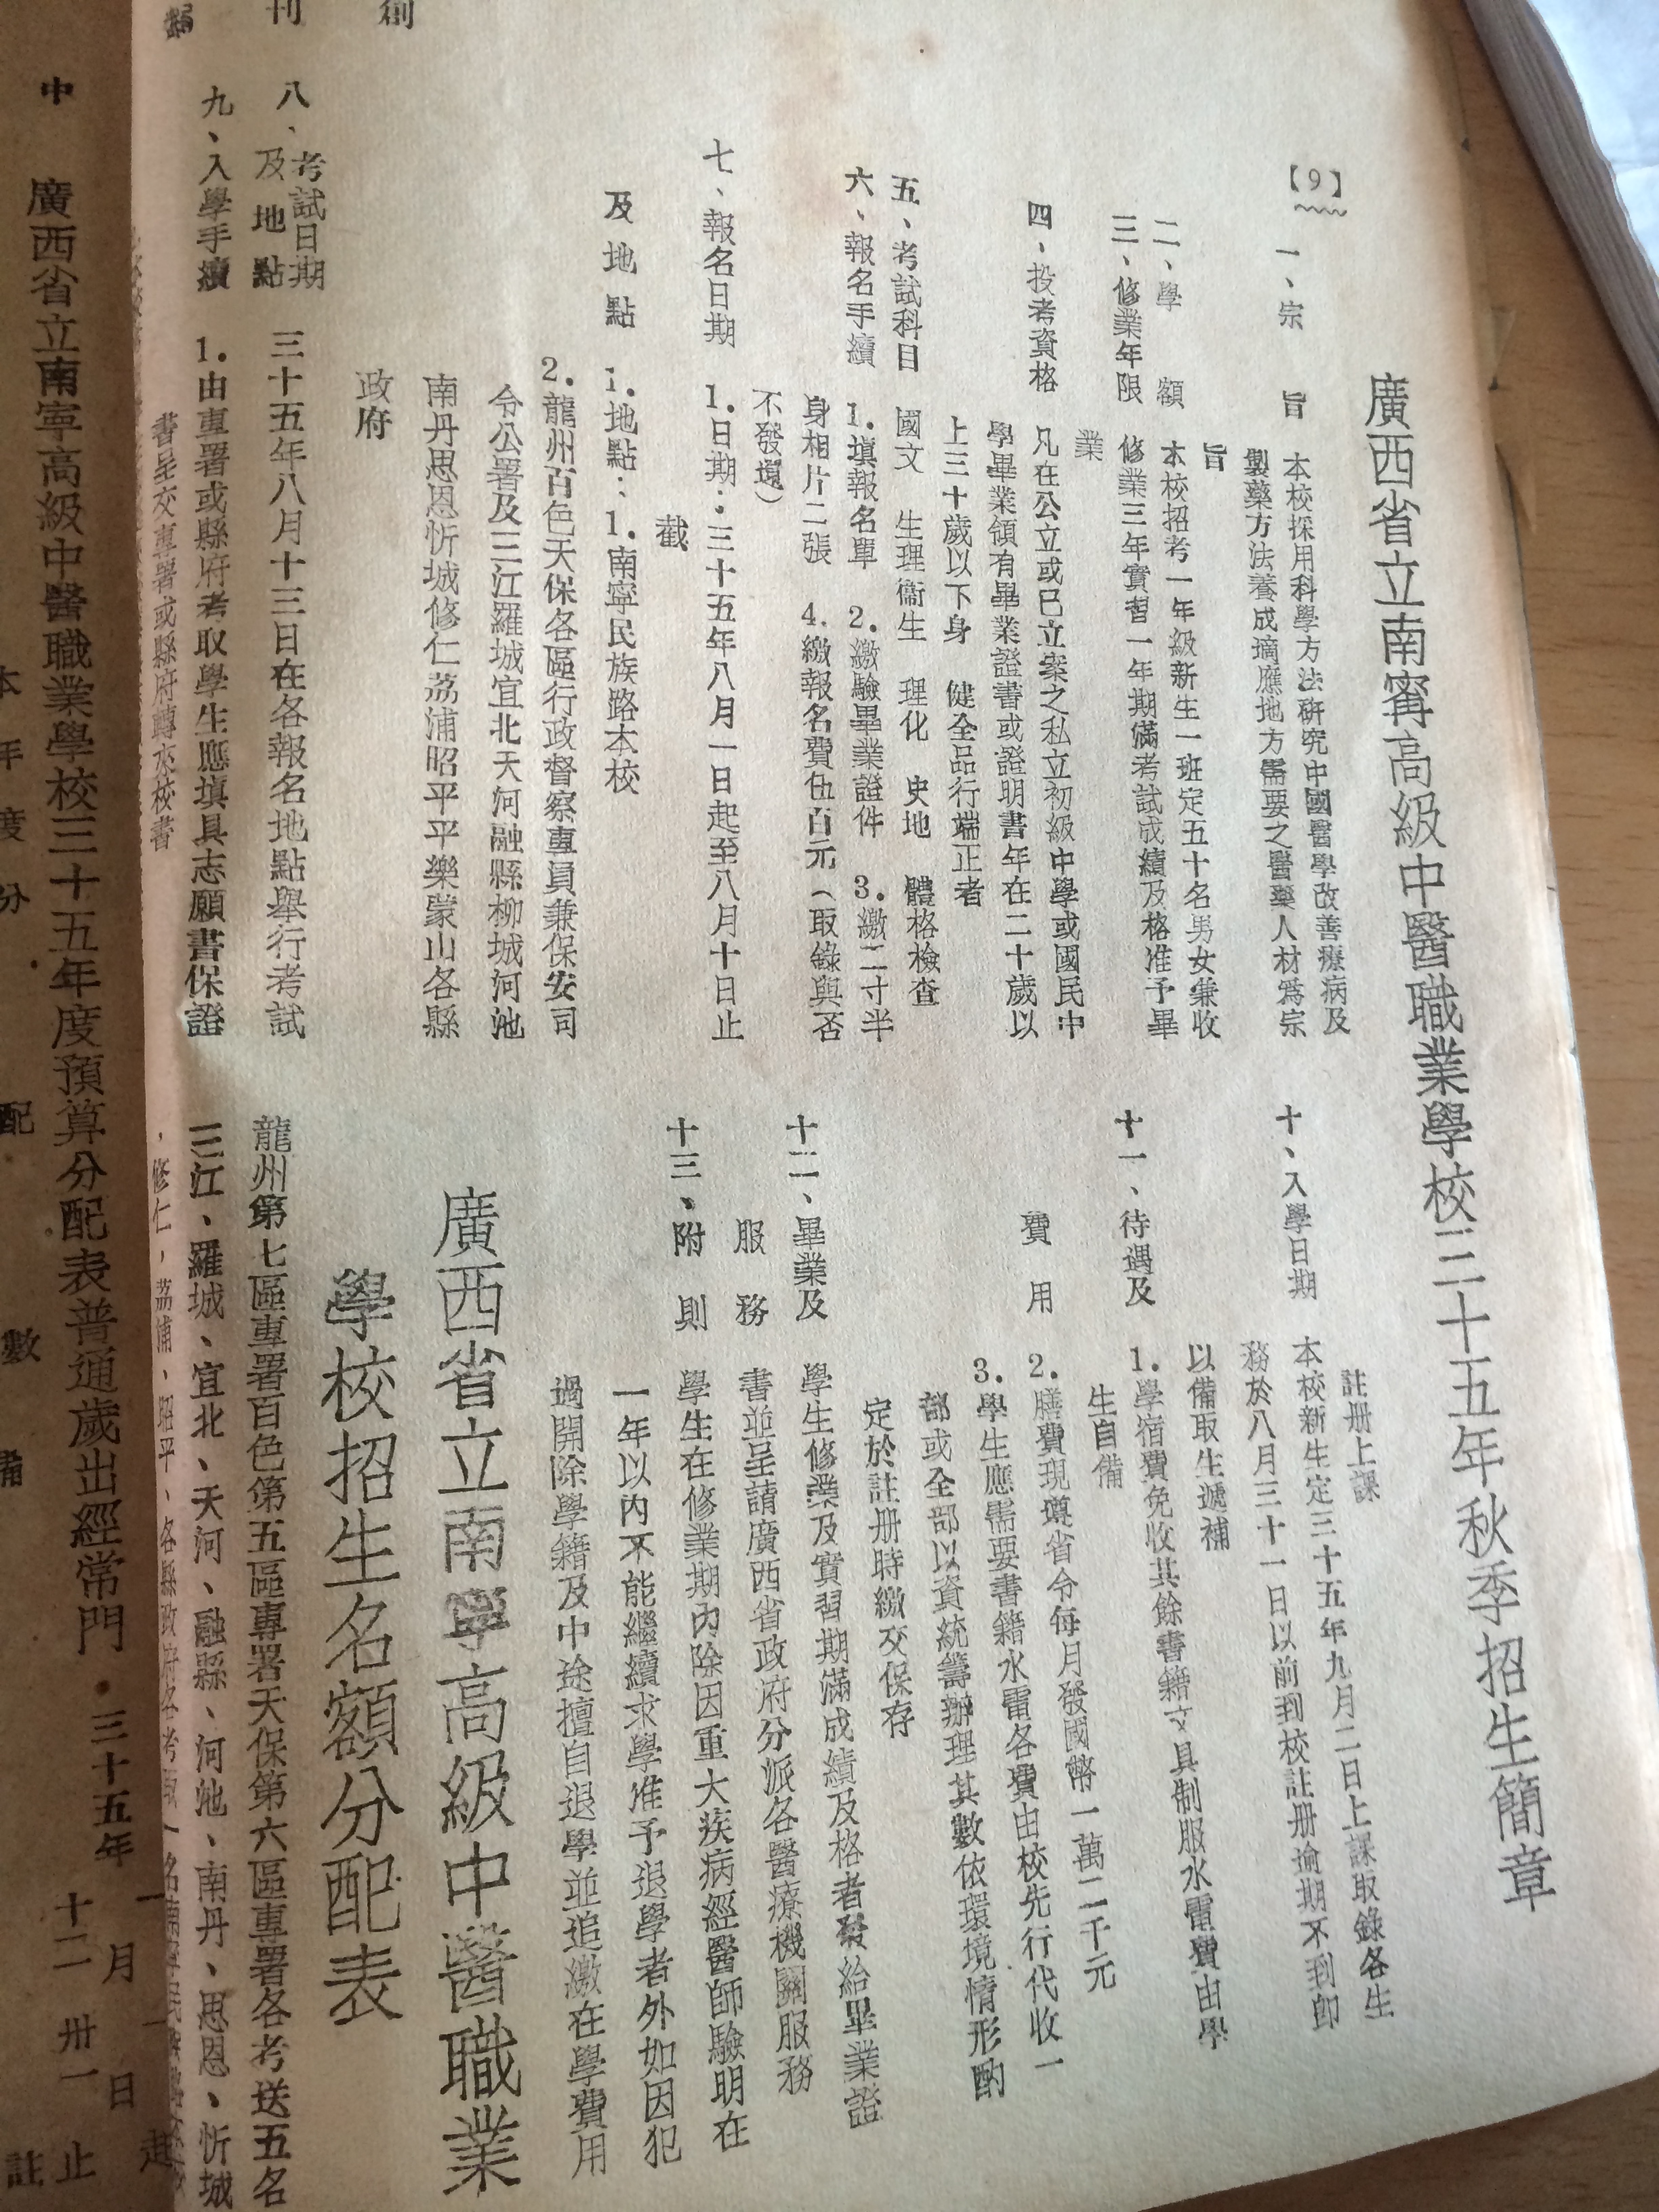 【9】
廣西省立南寗高級中醫職業學校三十五年秋季招生簡章
一、宗　旨　本校採用科學方法研究中國醫學改善療病及
製藥方法養成適應地方需要之醫藥人材爲宗
旨
二、學　額　本校招考一年級新生一班定五十名男女兼收
三、修業年限　修業三年實習一年期滿考試成績及格准予畢
業
四、投考資格　凡在公立或已立案之私立初級中學或國民中
學畢業領有畢業證書或證明書年在二十歲以
上三十歲以下身　健全品行端正者
五、考試科目　國文　生理衞生　理化　史地　體格檢查
六、報名手續　1.填報名單　2.繳驗畢業證件　3.繳二寸半
身相片二張　4.繳報名費伍百元（取錄與否
不發還）
七、報名日期　1.日期：三十五年八月一日起至八月十日止
截
及地點　1.地點：1.南寧民族路本校
2.龍州百色天保各區行政督察專員兼保安司
令公署及三江羅城宜北天河融縣柳城河池
南丹思恩忻城修仁荔浦昭平平樂蒙山各縣
政府
八、考試日期
及地點　三十五年八月十三日在各報名地點舉行考試
九、入學手續　1.由專署或縣府考取學生應填具志願書保證
書呈交專署或縣府轉來校書
十、入學日期　註册上課
本校新生定三十五年九月二日上課取錄各生
務於八月三十一日以前到校註册逾期不到卽
以備取生遞補
十一、待遇及　1.學宿費免收其餘書籍文具制服水電費由學
生自備
費用　2.膳費現遵省令每月發國幣一萬二千元
3.學生應需要書籍水電各費由校先行代收一
部或全部以資統籌辦理其數依環境情形酌
定於註册時繳交保存
十二、畢業及　學生修業及實習期滿成績及格者發給畢業證
服務　書並呈請廣西省政府分派各醫療機關服務
十三、附則　學生在修業期內除因重大疾病經醫師驗明在
一年以內不能繼續求學准予退學者外如因犯
過開除學籍及中途擅自退學並追繳在學費用
廣西省立南寧高級中醫職業
學校招生名額分配表
龍州第七區專署百色第五區專署天保第六區專署各考送五名
三江、羅城、宜北、天河、融縣、河池、南丹、思恩、忻城
，修仁，荔浦、昭平、各縣政府各考取一名
創
刊
號
中
廣西省立南寧高級中醫職業學校三十五年度預算分配表普通歲出經常門・三十五年
一月一日起
十二　卅一　止
本年度分配數備註